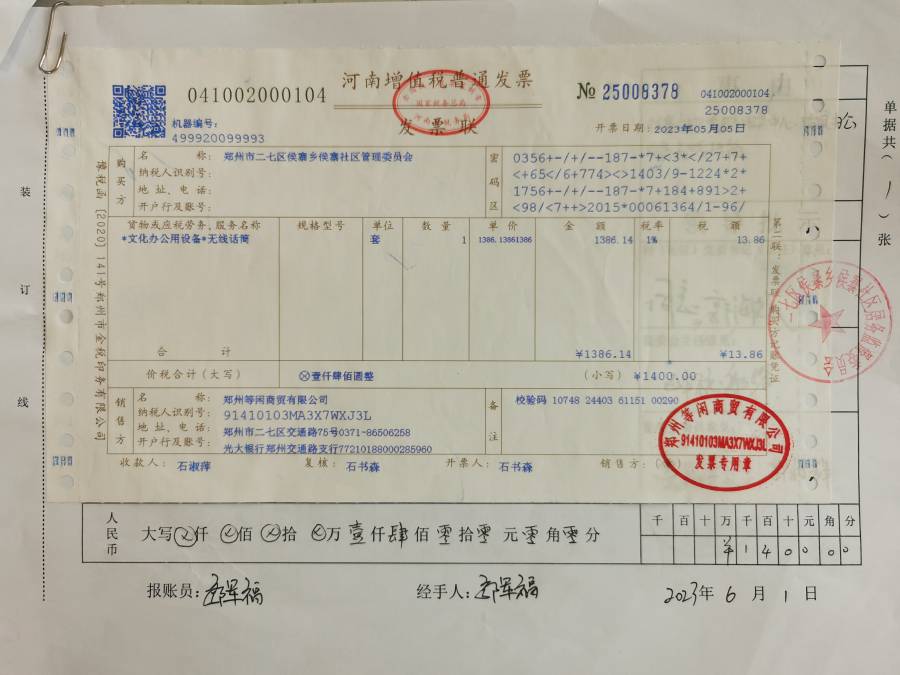 河南增值税普通发票
发票联
041002000104
№ 25008378
041002000104
25008378
机器编号:
499920099993
开票日期: 2023年05月05日
购买方
名 称: 郑州市二七区侯寨乡侯寨社区管理委员会
纳税人识别号:
地址、电话:
开户行及账号:
密码区
0356+-/+/--187-*7+<3*</27+7+
<+65</6+774><>1403/9-1224*2*
1756+-/+/--187-*7+184+891>2+
<98/<7++>2015*00061364/1-96/
货物或应税劳务、服务名称 规格型号 单位 数量 单价 金额 税率 税额
*文化办公用设备*无线话筒 套 1 1386.13861386 1386.14 1% 13.86
合 计 ¥1386.14 ¥13.86
价税合计(大写) ⊗壹仟肆佰圆整 (小写) ¥1400.00
销售方
名 称: 郑州等闲商贸有限公司
纳税人识别号: 91410103MA3X7WXJ3L
地址、电话: 郑州市二七区交通路75号0371-86506258
开户行及账号: 光大银行郑州交通路支行77210188000285960
备注
校验码 10748 24403 61151 00290
收款人: 石淑萍 复核: 石书森 开票人: 石书森 销售方:
郑州等闲商贸有限公司
91410103MA3X7WXJ3L
发票专用章
豫税函〔2020〕141号郑州市金税印务有限公司
第二联:发票联 购买方记账凭证
装
订
线
单据共(1)张
人民币
大写 仟 佰 拾 万 壹仟肆佰零拾零元零角零分
千 百 十 万 千 百 十 元 角 分
¥ 1 4 0 0 0 0
报账员:
经手人:
2023年 6 月 1 日